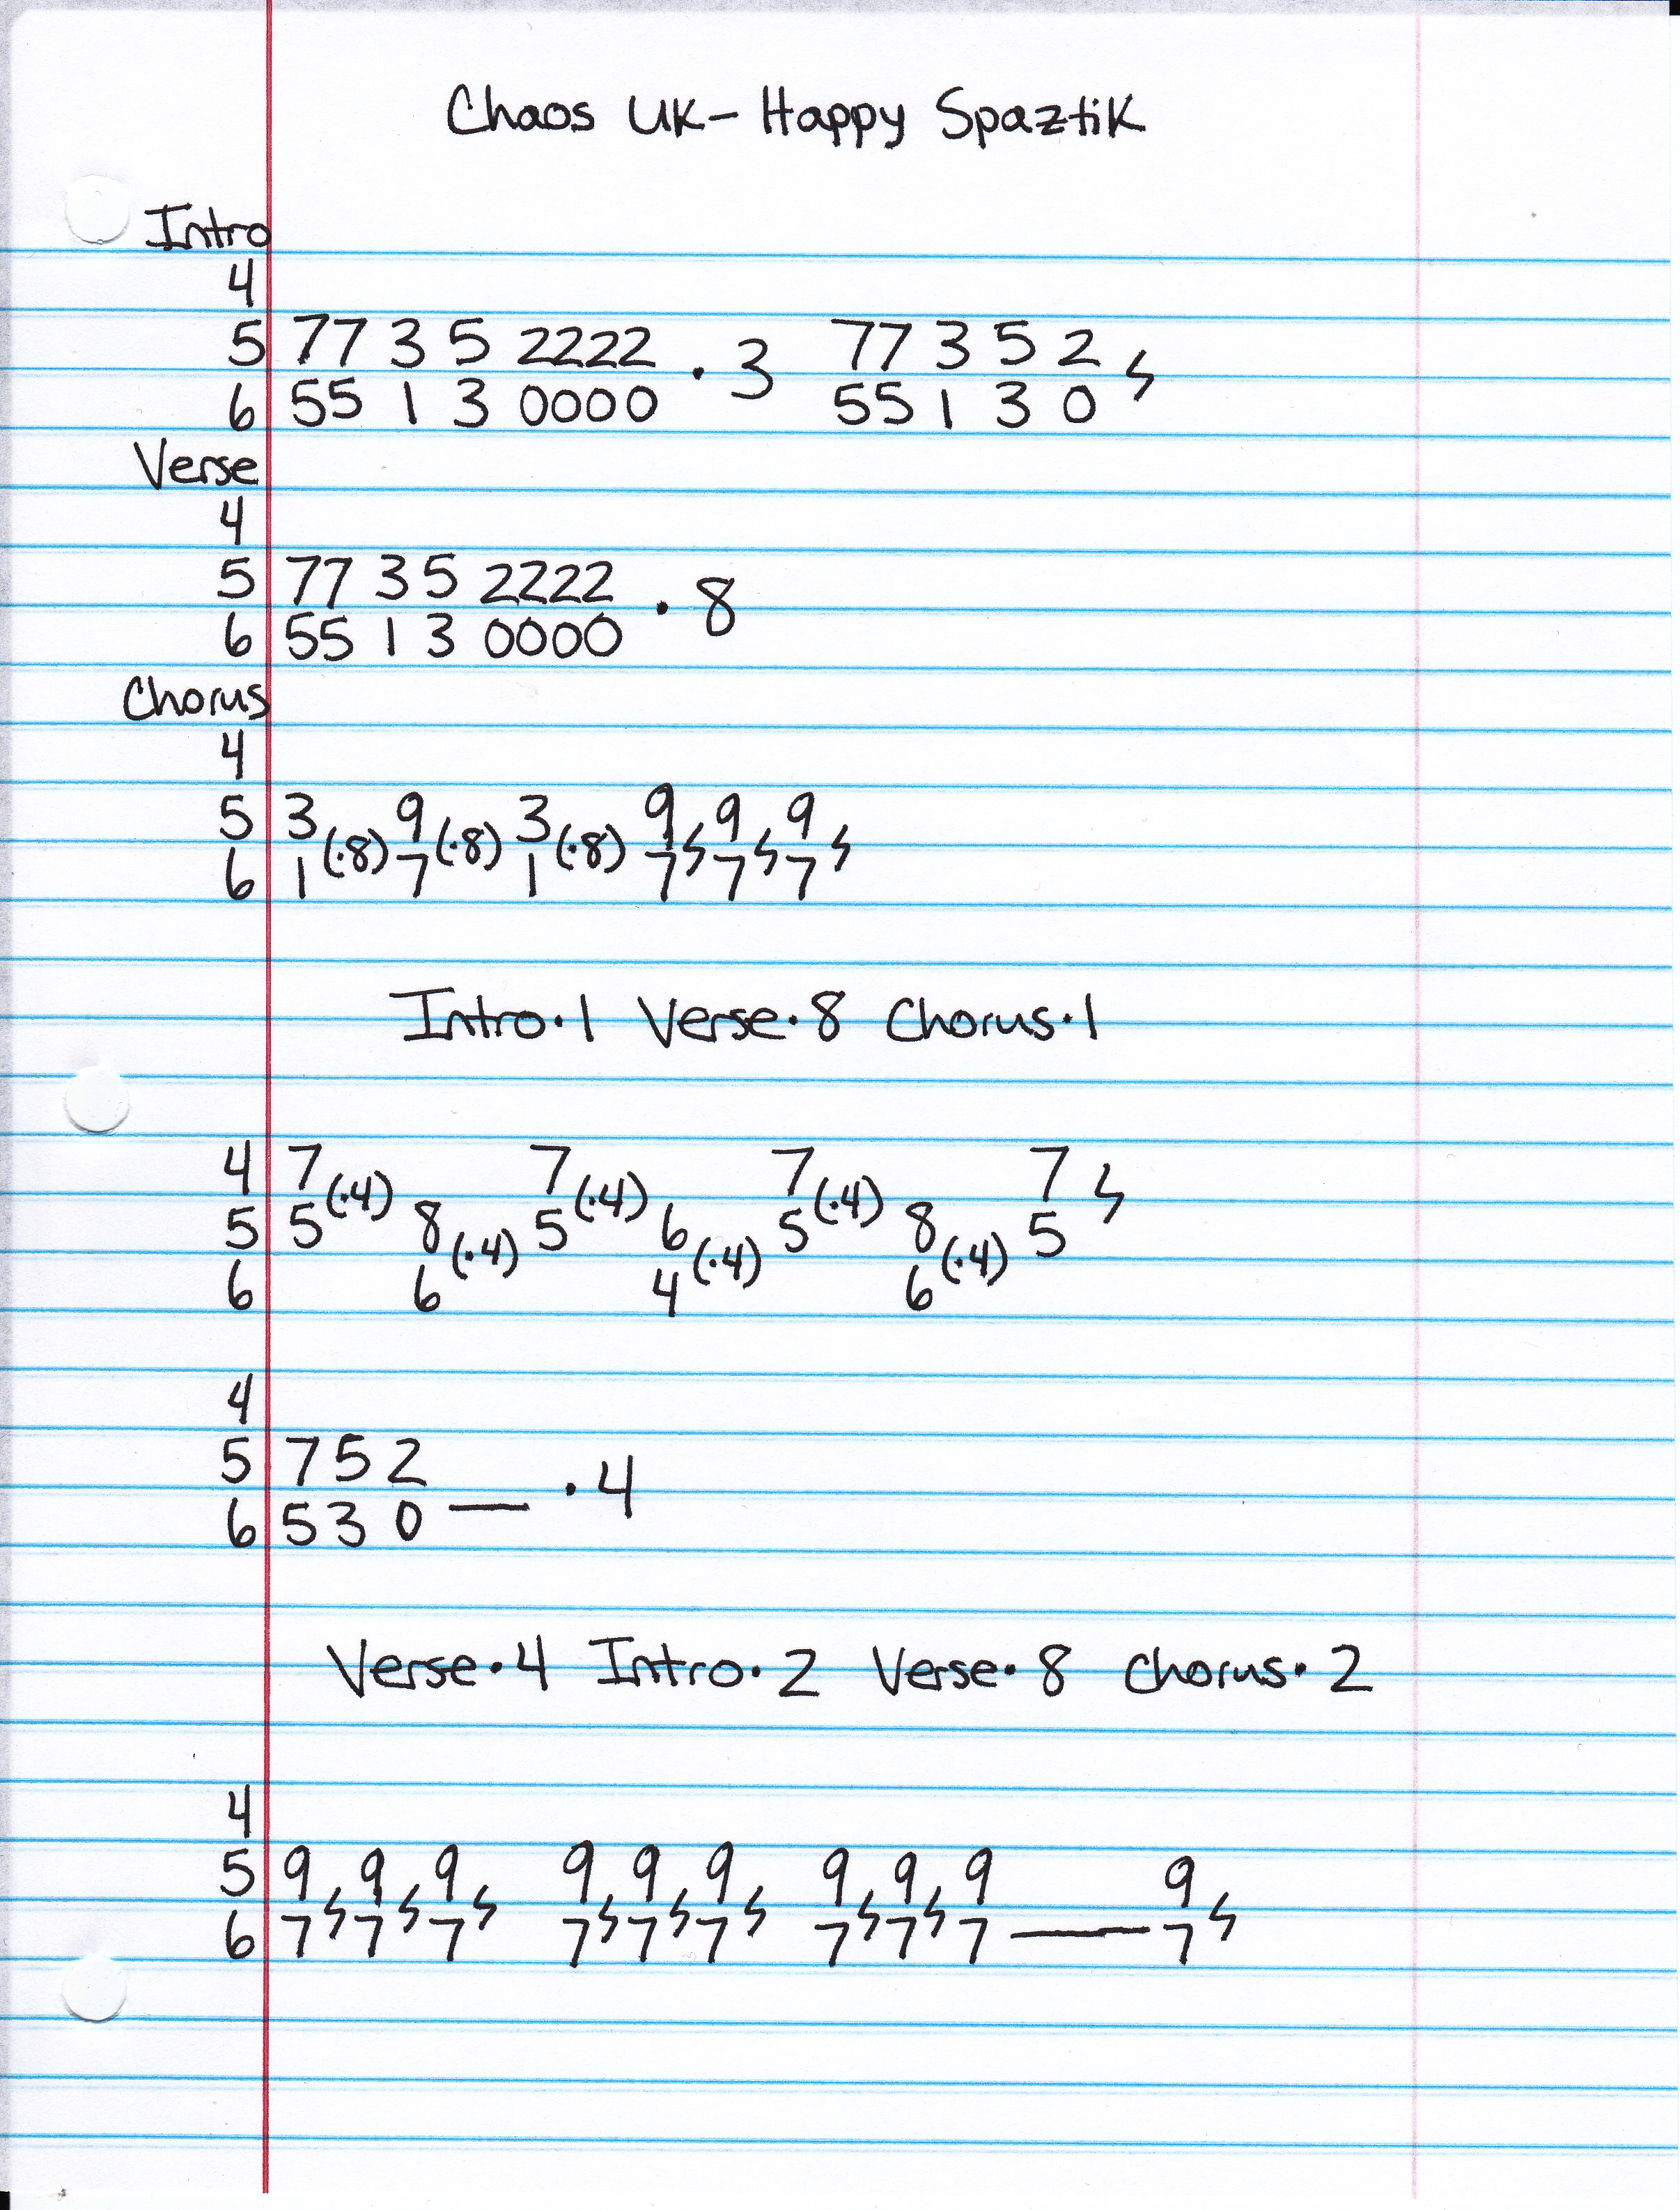 Chaos UK - Happy Spaztik
Intro
4
5 77 3 5 2222 · 3 77 3 5 2 ϟ
6 55 1 3 0000 55 1 3 0
Verse
4
5 77 3 5 2222 · 8
6 55 1 3 0000
Chorus
4
5 3 (·8) 9 (·8) 3 (·8) 9 ϟ 9 ϟ 9 ϟ
6 1 7 1 7 7 7
Intro·1 Verse·8 Chorus·1
4 7 (·4) 7 (·4) 7 (·4) 7 ϟ
5 5 8 (·4) 5 6 (·4) 5 8 (·4) 5
6 6 4 6
4
5 7 5 2 · 4
6 5 3 0 —
Verse·4 Intro·2 Verse·8 Chorus·2
4
5 9 ϟ 9 ϟ 9 ϟ 9 ϟ 9 ϟ 9 ϟ 9 ϟ 9 ϟ 9 9 ϟ
6 7 7 7 7 7 7 7 7 7 — 7